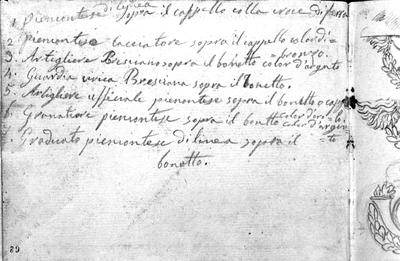 di linea
1 piemontese sopra il cappello colla croce di
2. piemontese cacciatore sopra il cappello color di
bronzo.
3. Artigliere Bresciano sopra il bonetto color d'argento
4. Guardia civica Bresciana sopra il bonetto.
5. Artigliere ufficiale piemontese sopra il bonetto o
6. Granatiere piemontese sopra il bonetto color d'argen
to
7. Graduato piemontese di linea sopra il
bonetto.
89